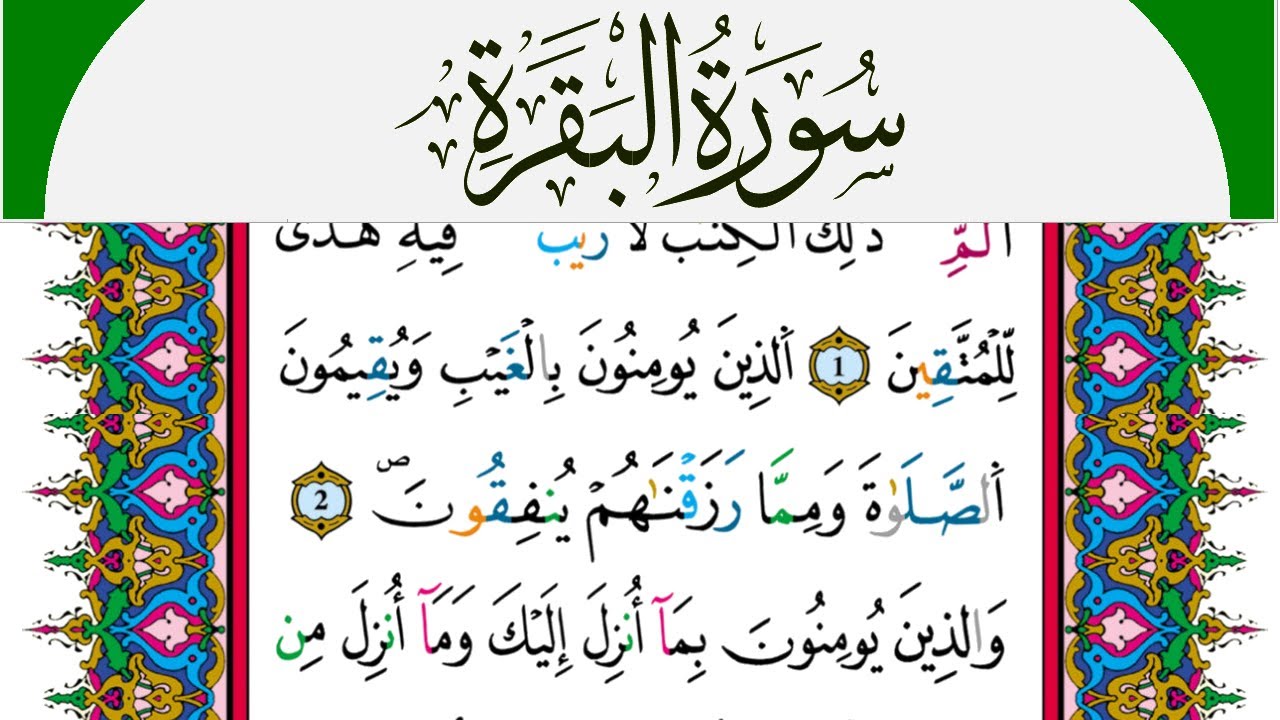 سُورَةُ الْبَقَرَةِ
الَمِّ ذلِكَ الكِتب لا ريب فِيهِ هدى
لِّلْمُتَّقِينَ 1 اَلذِينَ يُومِنُونَ بِالْغَيْبِ وَيُقِيمُونَ
اَلصَّلَوٰةَ وَمِمَّا رَزَقْنَٰهُمْ يُنفِقُونَ ص 2
وَالذِينَ يُومِنُونَ بِمَآ أُنزِلَ إِلَيْكَ وَمَآ أُنزِلَ مِن